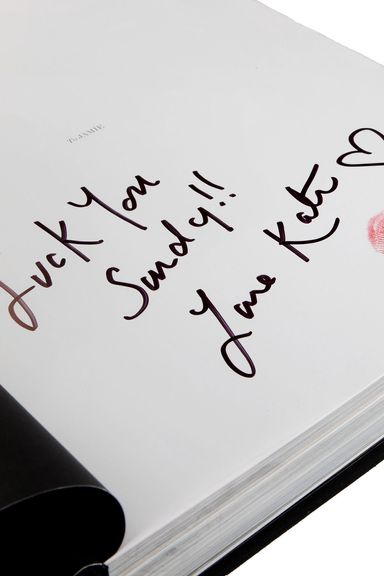 To JAMIE
Luck You
Sandy!!
Love Kate ♡